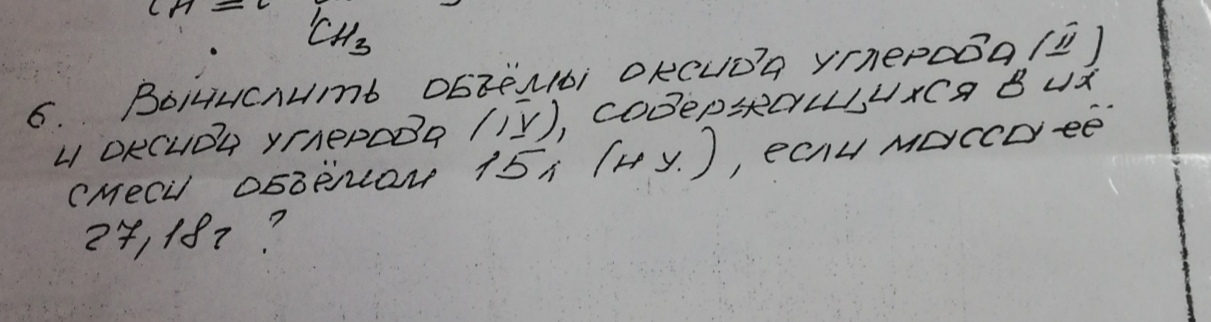 CH₃
6. Вычислить объёмы оксида углерода (II)
и оксида углерода (IV), содержащихся в их
смеси объёмом 15 л (н у.), если масса её
27,18 г ?